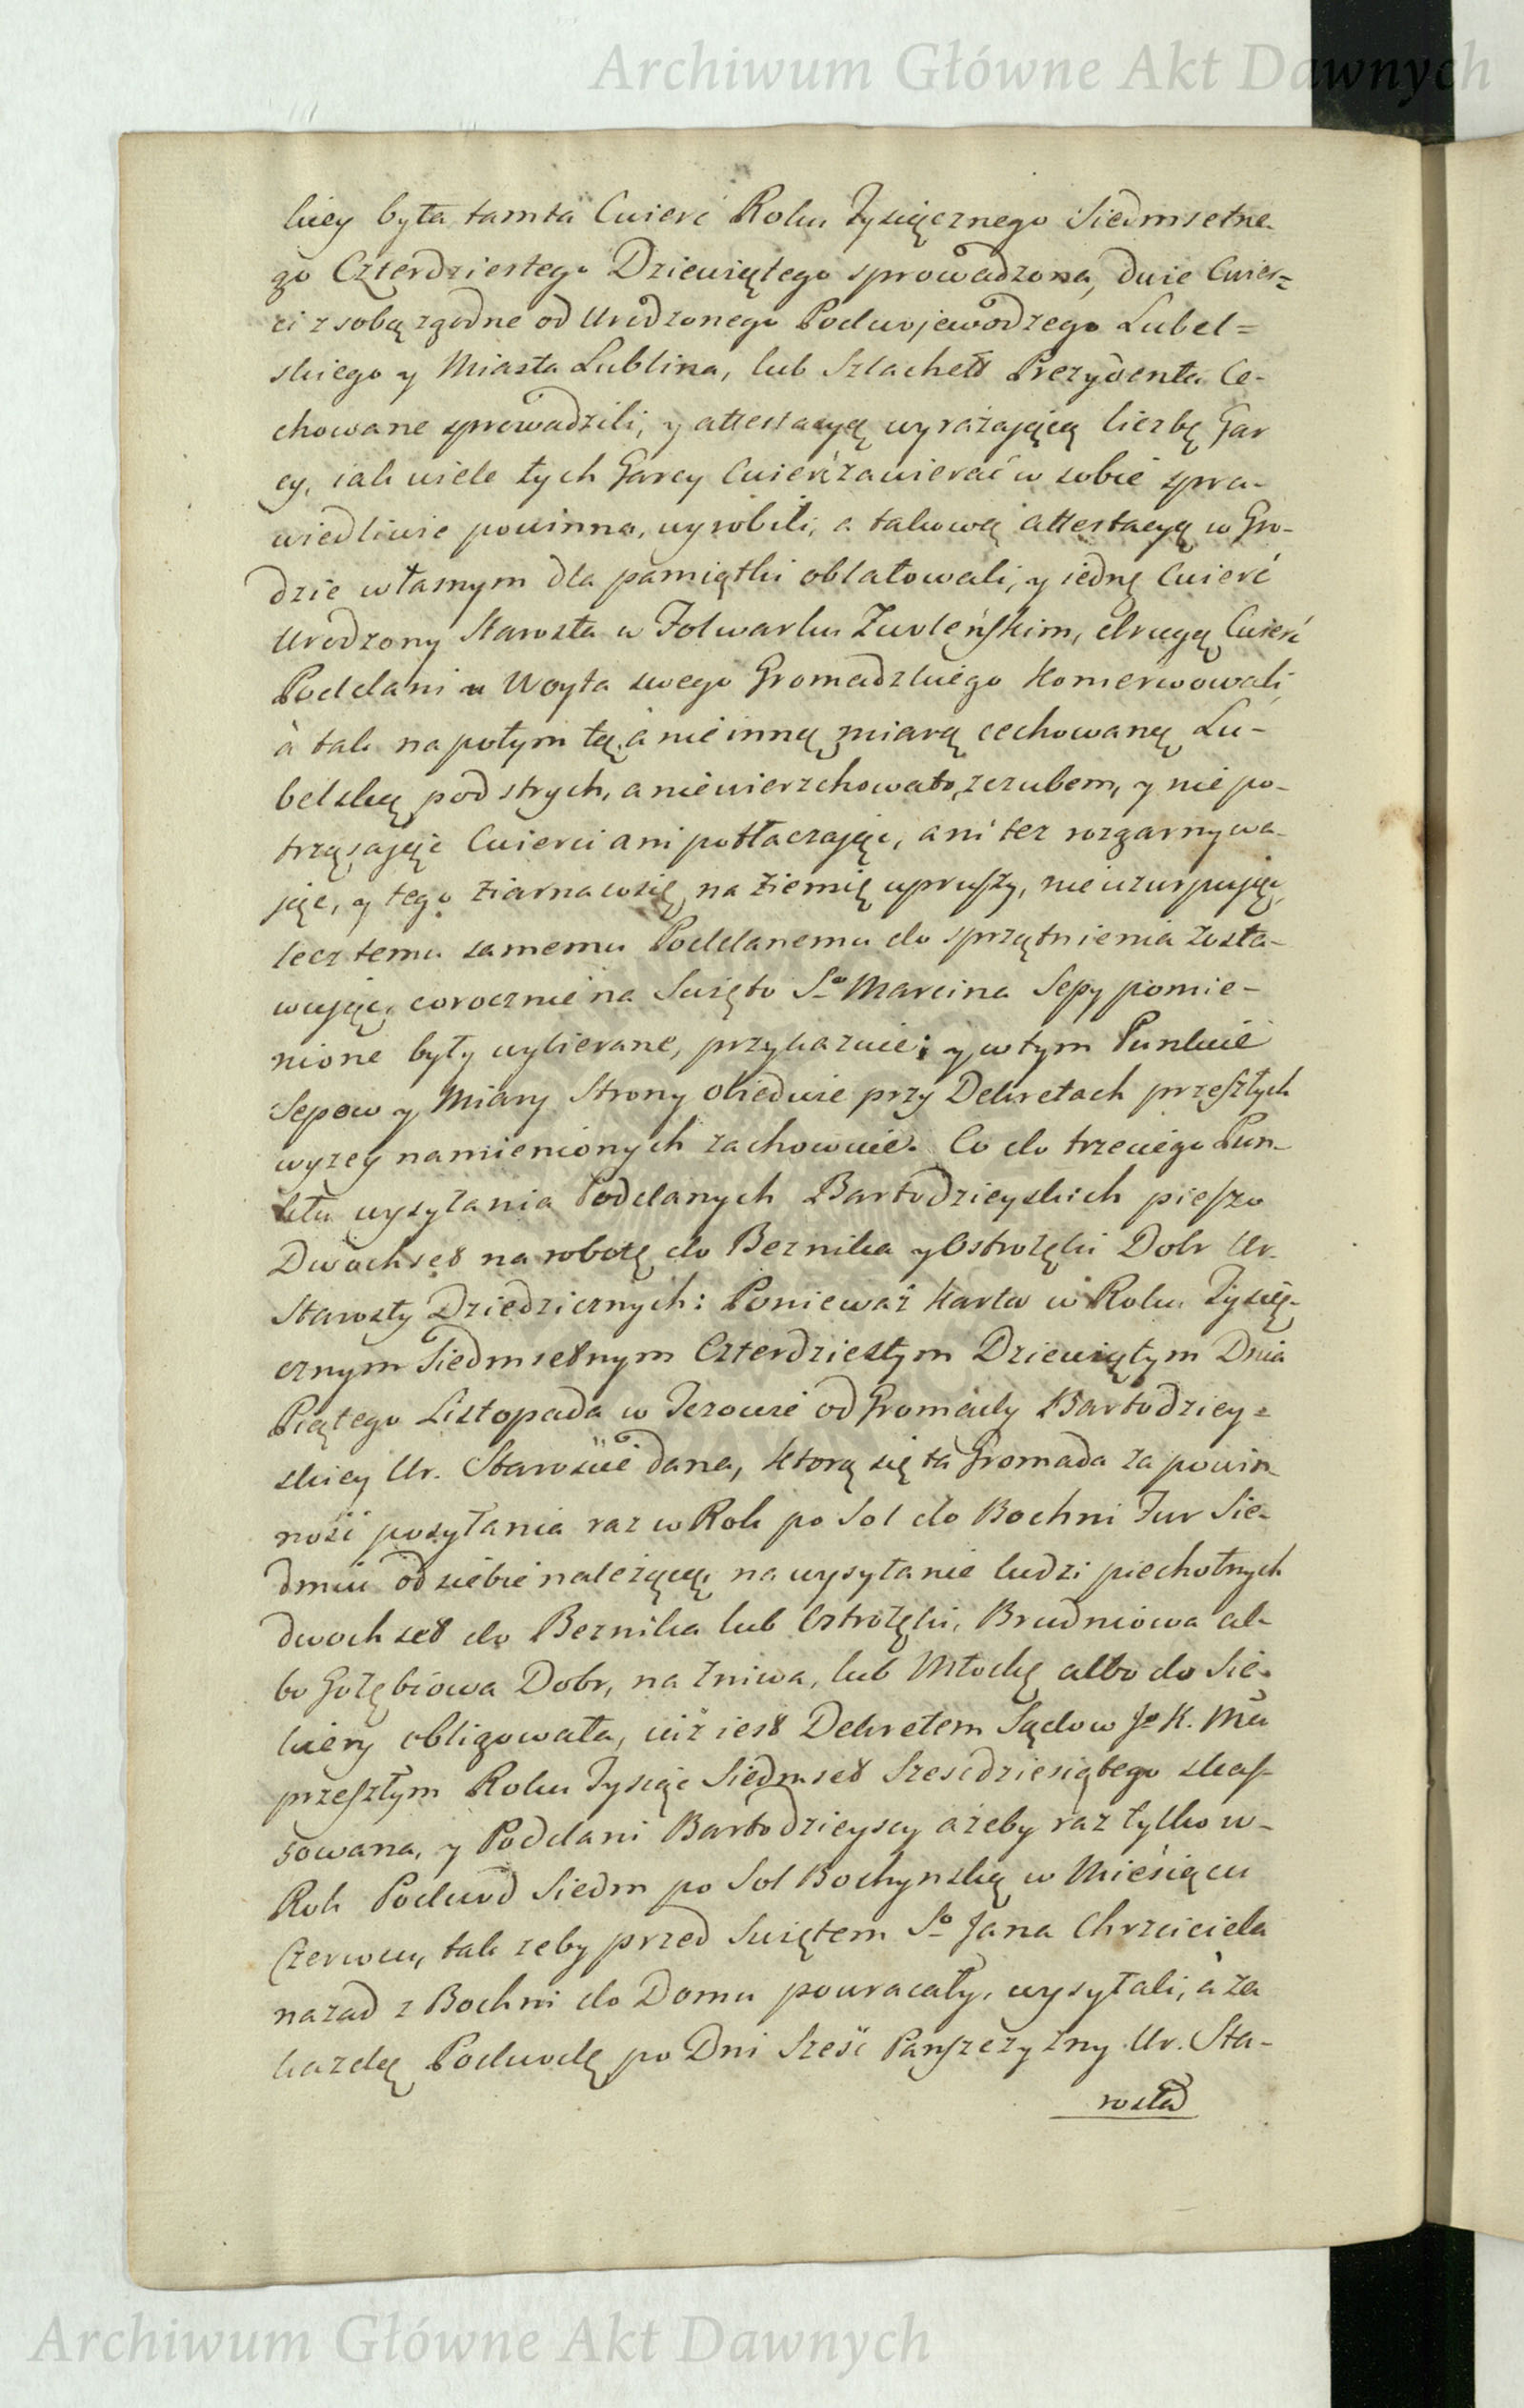 Archiwum Główne Akt Dawnych
kiey była tamta Cwierć Roku Tysiącznego Siedmsetne-
go Czterdziestego Dziewiątego sprowadzona, dwie Cwier=
ci z sobą zgodne od Urodzonego Podwojewodzego Lubel=
skiego y Miasta Lublina, lub Szlachett Prezydenta Ce-
chowane sprowadzili, y attestacyą wyrażaiącą liczbę Gar
cy, iak wiele tych Garcy Cwierć zawierać w sobie spra-
wiedliwie powinna, wyrobili, a takową attestacyą w Gro-
dzie własnym dla pamiątki oblatowali, y iednę Cwierć
Urodzony Starosta w Folwarku Zwoleńskim, drugą Cwierć
Poddani u Woyta swego Gromadzkiego konserwowali,
à tak na potym tą, à nie inną miarą cechowaną Lu-
belską pod strych, a nie wierzchowato, z czubem, y nie po-
trząsaiąc Cwierci ani potłaczaiąc, ani też rozgarnywa-
iąc, y tego ziarna co się na ziemię upruszy, nie uzurpuiąc,
lecz temu samemu Poddanemu do sprzątnienia zosta-
wuiąc, corocznie na Swięto So Marcina Sepy pomie-
nione były wybierane, przykazuie; y w tym Punkcie
Sepow y Miary Strony obiedwie przy Dekretach przeszłych
wyzey namienionych zachowuie. Co do trzeciego Pun-
ktu wysyłania Poddanych Bartodzieyskich pieszo
Dwochset na robotę do Beznika y Ostrołęki Dobr Ur.
Starosty Dziedzicznych: Ponieważ Karta w Roku Tysią-
cznym Siedmsetnym Czterdziestym Dziewiątym Dnia
Piątego Listopada w Jezowie od Gromady Bartodziey=
skiey Ur. Staroscie dana, ktorą się ta Gromada za powin-
ność posyłania raz w Rok po Sol do Bochni Fur Sie-
dmiu od siebie należącą, na wysyłanie ludzi piechotnych
dwochset do Beznika lub Ostrołęki, Brudniowa al-
bo Gołębiowa Dobr, na żniwa, lub Młockę albo do Sie-
kiery obligowała, iuż iest Dekretem Sądow Jo K. Mci
przeszłym Roku Tysiąc Siedmset Szescdziesiątego skas-
sowana, y Poddani Bartodzieyscy ażeby raz tylko w-
Rok Podwod Siedm po Sol Bochynską w Miesiącu
Czerwcu, tak żeby przed Swiętem So Jana Chrzciciela
nazad z Bochni do Domu powracały, wysyłali, à za
każdą Podwodę po Dni Sześć Pańszczyzny Ur. Sta-
rosta
Archiwum Główne Akt Dawnych